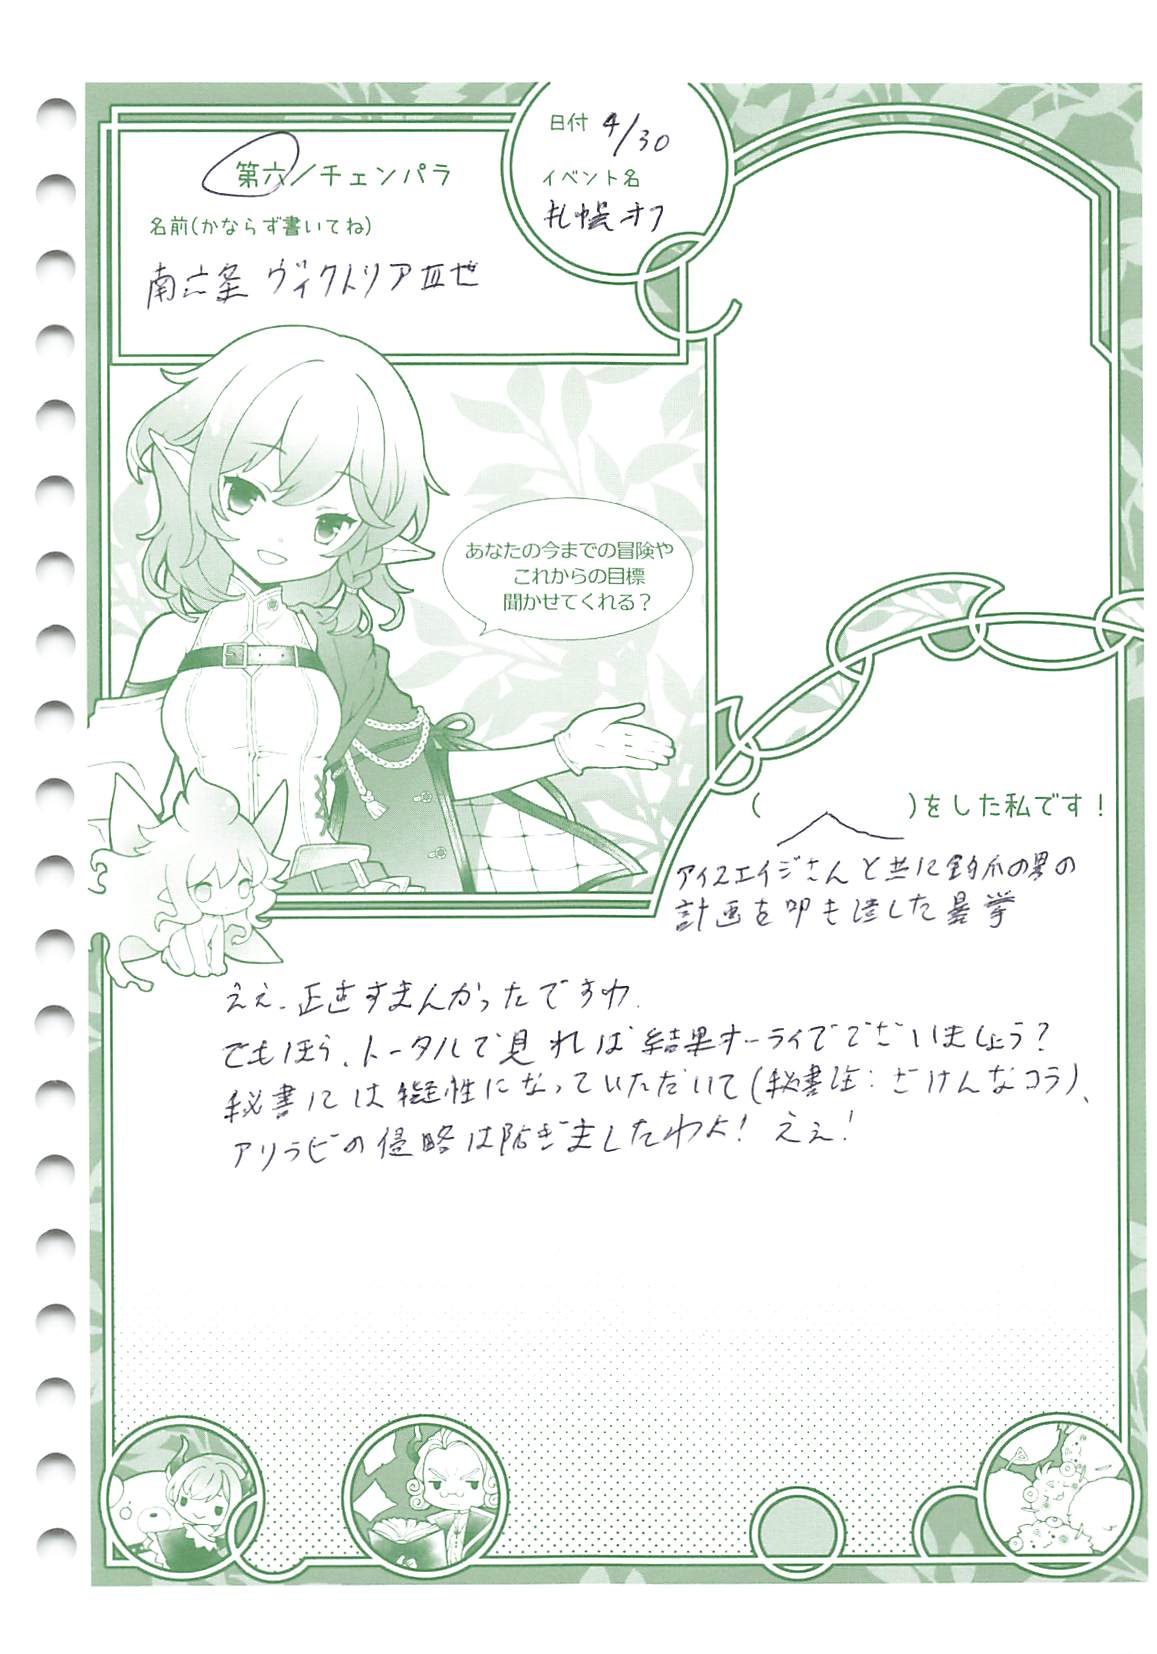 第六/チェンパラ
名前(かならず書いてね)
南六条 ヴィクトリアⅢ世
日付 4/30
イベント名
札幌オフ
あなたの今までの冒険や
これからの目標
聞かせてくれる?
( )をした私です!
アイスエイジさんと共に釣爪の男の
計画を叩き潰した暴挙
ええ、正直すまんかったですわ.
でもほら、トータルで見れば結果オーライでございましょう?
秘書には犠牲になっていただいて(秘書註:ざけんなコラ)、
アリラビの侵略は防ぎましたわよ! ええ!